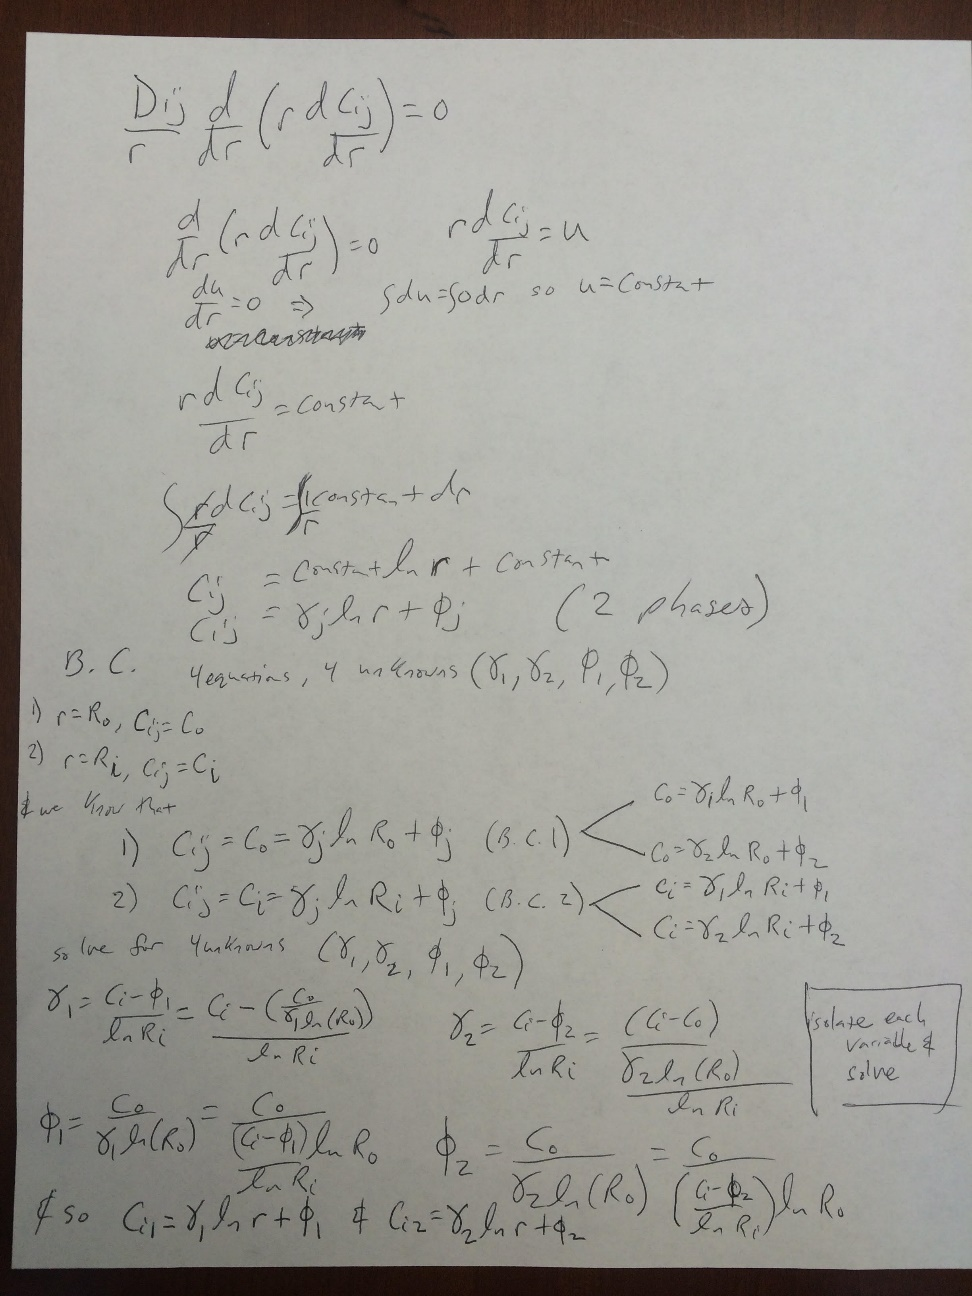 Dij/r d/dr (r dCij/dr) = 0
d/dr (r dCij/dr) = 0    r dCij/dr = u
du/dr = 0 ⇒ ∫du = ∫0dr so u = constat
r dCij/dr = constat
∫ r/r dCij = ∫ 1/r constant dr
Cij = constat ln r + constant
Cij = γj ln r + ϕj    (2 phases)
B.C.    4 equations, 4 unknowns (γ1, γ2, ϕ1, ϕ2)
1) r = Ro, Cij = Co
2) r = Ri, Cij = Ci
& we know that
1) Cij = Co = γj ln Ro + ϕj (B.C. 1)
Co = γ1 ln Ro + ϕ1
Co = γ2 ln Ro + ϕ2
2) Cij = Ci = γj ln Ri + ϕj (B.C. 2)
Ci = γ1 ln Ri + ϕ1
Ci = γ2 ln Ri + ϕ2
solve for 4 unknowns (γ1, γ2, ϕ1, ϕ2)
γ1 = (Ci − ϕ1)/ln Ri = (Ci − (Co/(γ1 ln(Ro))))/ln Ri    γ2 = (Ci − ϕ2)/ln Ri = ((Ci − Co)/(γ2 ln(Ro)))/ln Ri
isolate each
variable &
solve
ϕ1 = Co/(γ1 ln(Ro)) = Co/(((Ci − ϕ1)/ln Ri) ln Ro)    ϕ2 = Co/(γ2 ln(Ro)) = Co/(((Ci − ϕ2)/ln Ri) ln Ro)
& so Ci1 = γ1 ln r + ϕ1 & Ci2 = γ2 ln r + ϕ2